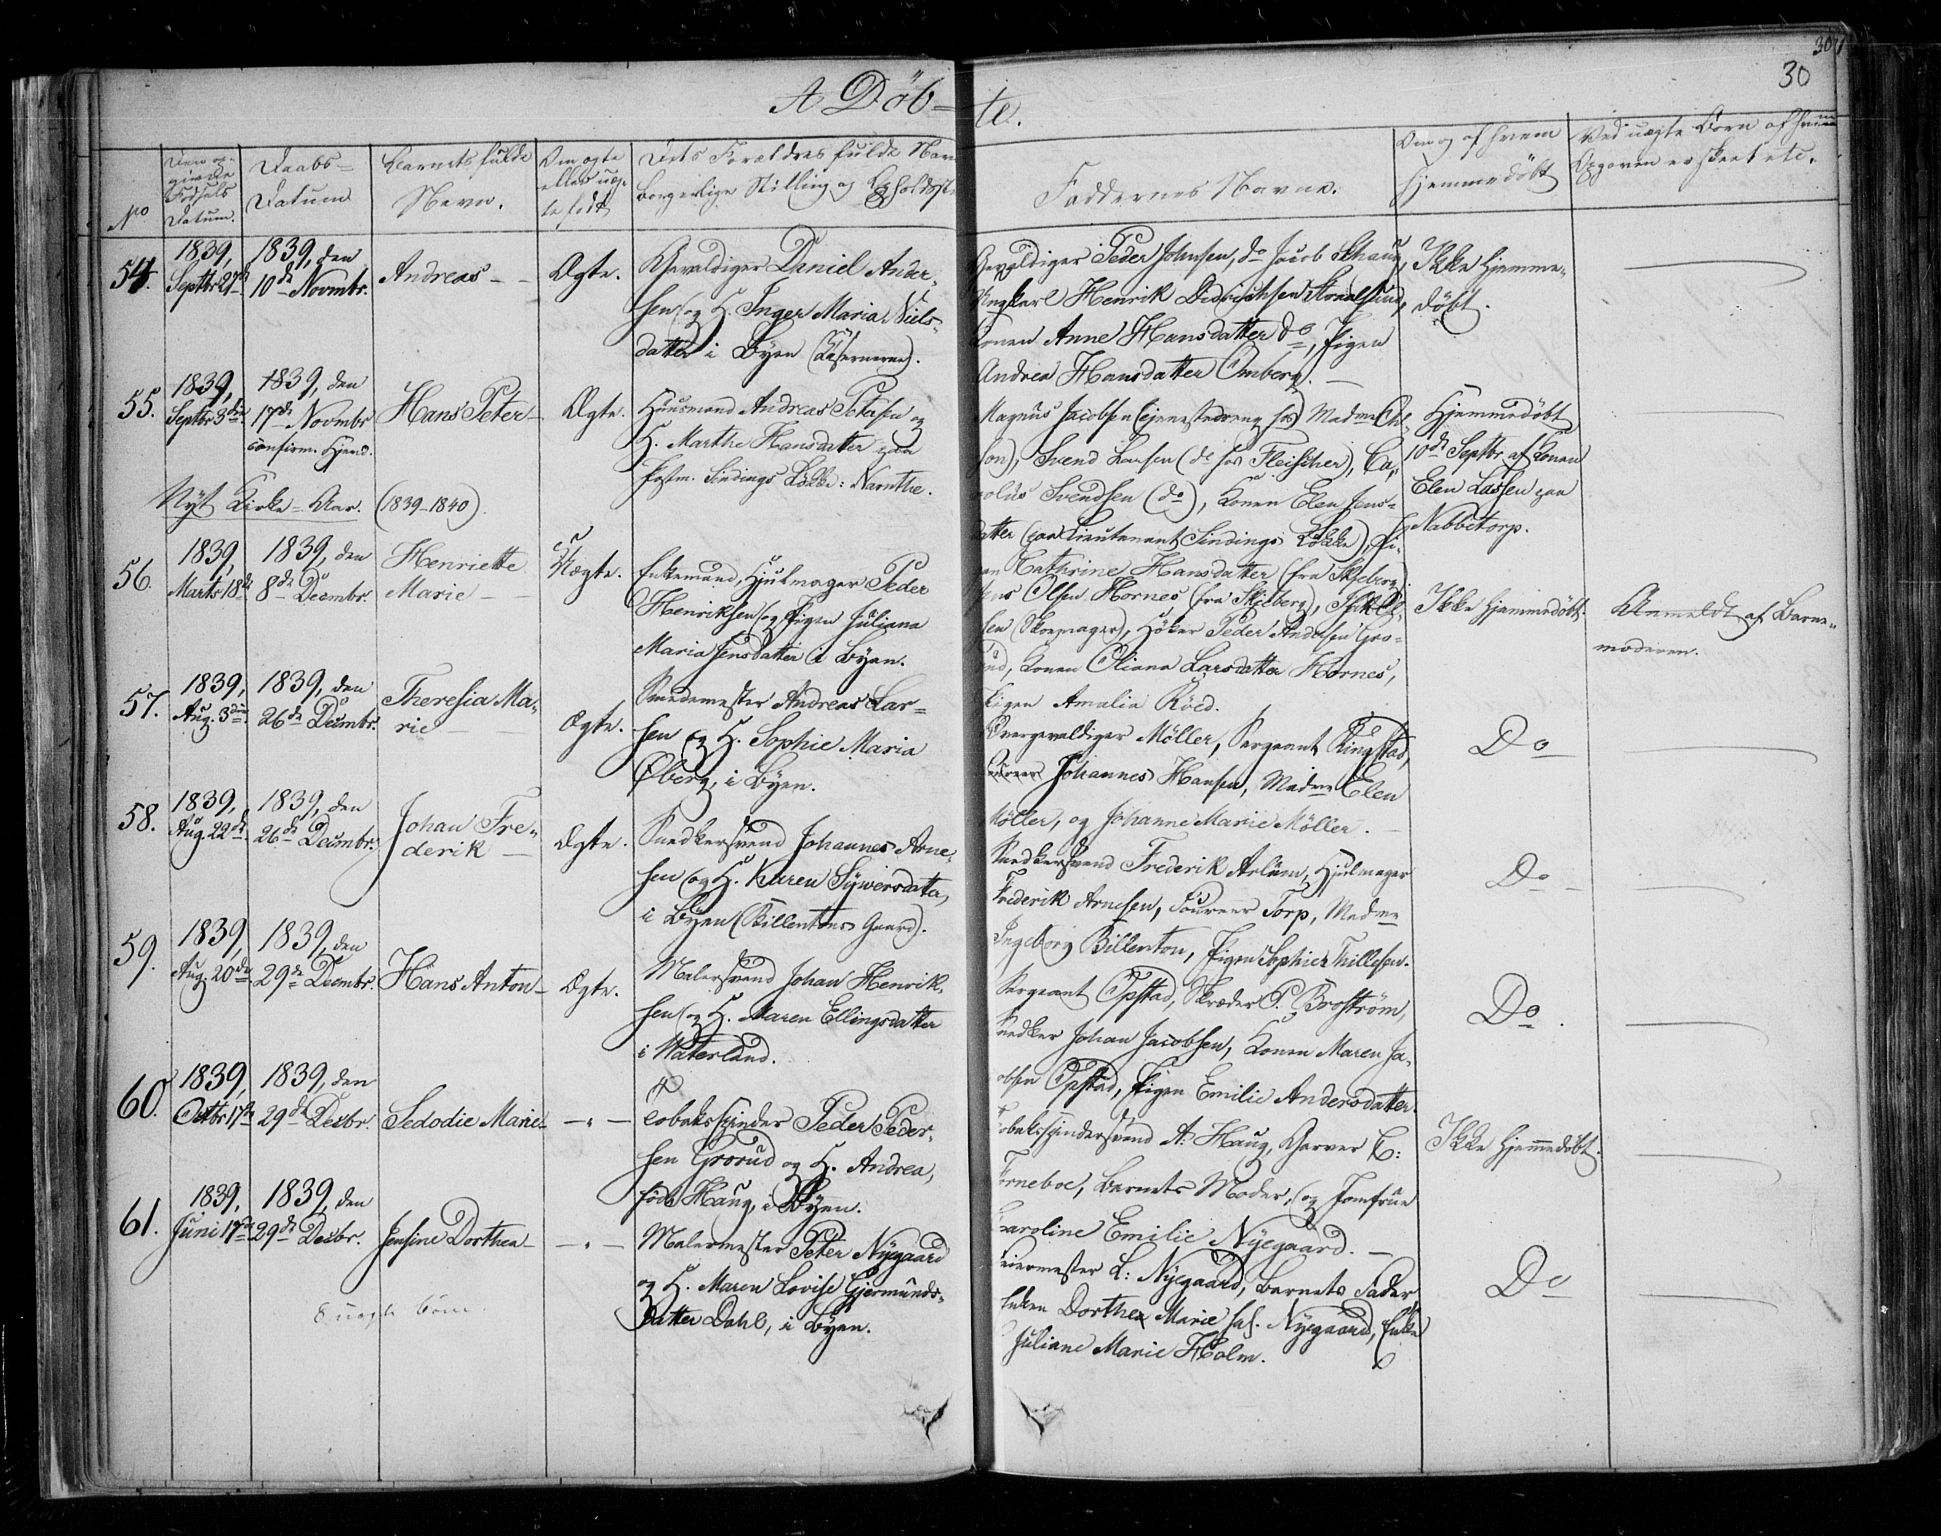 30
A Döb-te.
No
Den opgivne Födsels Datum.
Daabs-Datum
Barnets fulde Navn.
Om ægte eller uægte födt
Dets Forældres fulde Navn borgerlige Stilling og Opholdsst
Faddernes Navne.
Om og af hvem hjemmedöbt
Ved uægte Börn af hvem Opgaven er skeet etc.
54.
1839, Septbr 27de
1839, den 10de Novmbr.
Andreas
Ægte.
Gevaldiger Daniel Ander-
sen og H. Inger Maria Niels-
datter i Byen (Casernerne).
Gevaldiger Peder Johnsen, do Jacob Schaug,
Ungkarl Henrik Didrichsen Stralsund,
Konen Anne Hansdatter do, Pigen
Andrea Hansdatter Omberg.
Ikke hjemme-
döbt.
55.
1839, Septbr 3die
1839, den 17de Novmbr
confirm. Hjemd.
Hans Peter
Ægte.
Huusmand Andreas Petersen og
H. Marthe Hansdatter paa
Postm. Sindings Lökke: Narnthe.
Magnus Jacobsen (tjenestedreng hos Madme
son), Svend Larsen (do hos Fleischer), Ca-
rolus Svendsen (do), Konen Elen Jens-
datter (paa Lieutenant Sindings Lökke), Pi-
gen Cathrine Hansdatter (fra Skjeberg).
Hjemmedöbt
10de Septbr af Konen
Elen Lassen paa
Nabbetorp.
Nyt Kirke-Aar. (1839-1840).
56.
1839, Marts 18de
1839, den 8de Decmbr.
Henriette
Marie
Uægte.
Enkemand, Hjulmager Peder
Henriksen og Pigen Juliana
Maria Jensdatter i Byen.
Jens Olsen Hornes (fra Skjeberg),
sen (Skomager), Höker Peder Andersen Gro-
rud, Konen Oliana Larsdatter Hornes,
Pigen Amalia Röed.
Ikke hjemmedöbt.
Anmeldt af Barne-
moderen.
57.
1839, Aug. 3die
1839, den 26de Decmbr.
Theresia Ma-
rie
Ægte.
Smedemester Andreas Lar-
sen og H. Sophie Maria
Öberg, i Byen.
Overgevaldiger Möller, Sergeant Ringstad,
Johannes Hansen, Madme Elen
Möller, og Johanne Marie Möller.
Do
58.
1839, Aug. 22de
1839, den 26de Decmbr.
Johan Fre-
derik
Ægte.
Snedkersvend Johannes Arne-
sen og H. Karen Sÿwersdatter,
i Byen (Billentons Gaard).
Snedkersvend Frederik Arlüm, Hjulmager
Frederik Arnesen, Foureer Torp, Madme
Ingeborg Billenton, Pigen Sophie Thillesen.
Do
59.
1839, Aug. 20de
1839, den 29de Decmbr.
Hans Anton
Ægte.
Malersvend Johan Henrik-
sen og H. Maren Ellingsdatter
i Waterland.
Sergeant Opstad, Skræder P. Broström,
Snedker Johan Jacobsen, Konen Maren Ja-
cobsen Opstad, Pigen Emilie Andersdatter.
Do
60.
1839, Octbr 17de
1839, den 29de Decbr.
Sedodie Marie
Tobaksspinder Peder Peder-
sen Grorud og H. Andrea,
föde Haug, i Byen.
Tobaksspindersvend A. Haug, Garver C:
Torneboe, Barnets Moder, og Jomfrue
Caroline Emilie Nyegaard.
Ikke hjemmedöbt.
61.
1839, Juni 17de
1839, den 29de Decbr.
Jensine Dorthea
Malermester Peter Nÿgaard
og H. Maren Lovise Gjermunds-
datter Dahl, i Byen.
Feiermester L: Nyegaard, Barnets Fader
Enken Dorthea Marie sal. Nyegaard, Enke
Juliane Marie Holm.
Do
8 uægte börn.